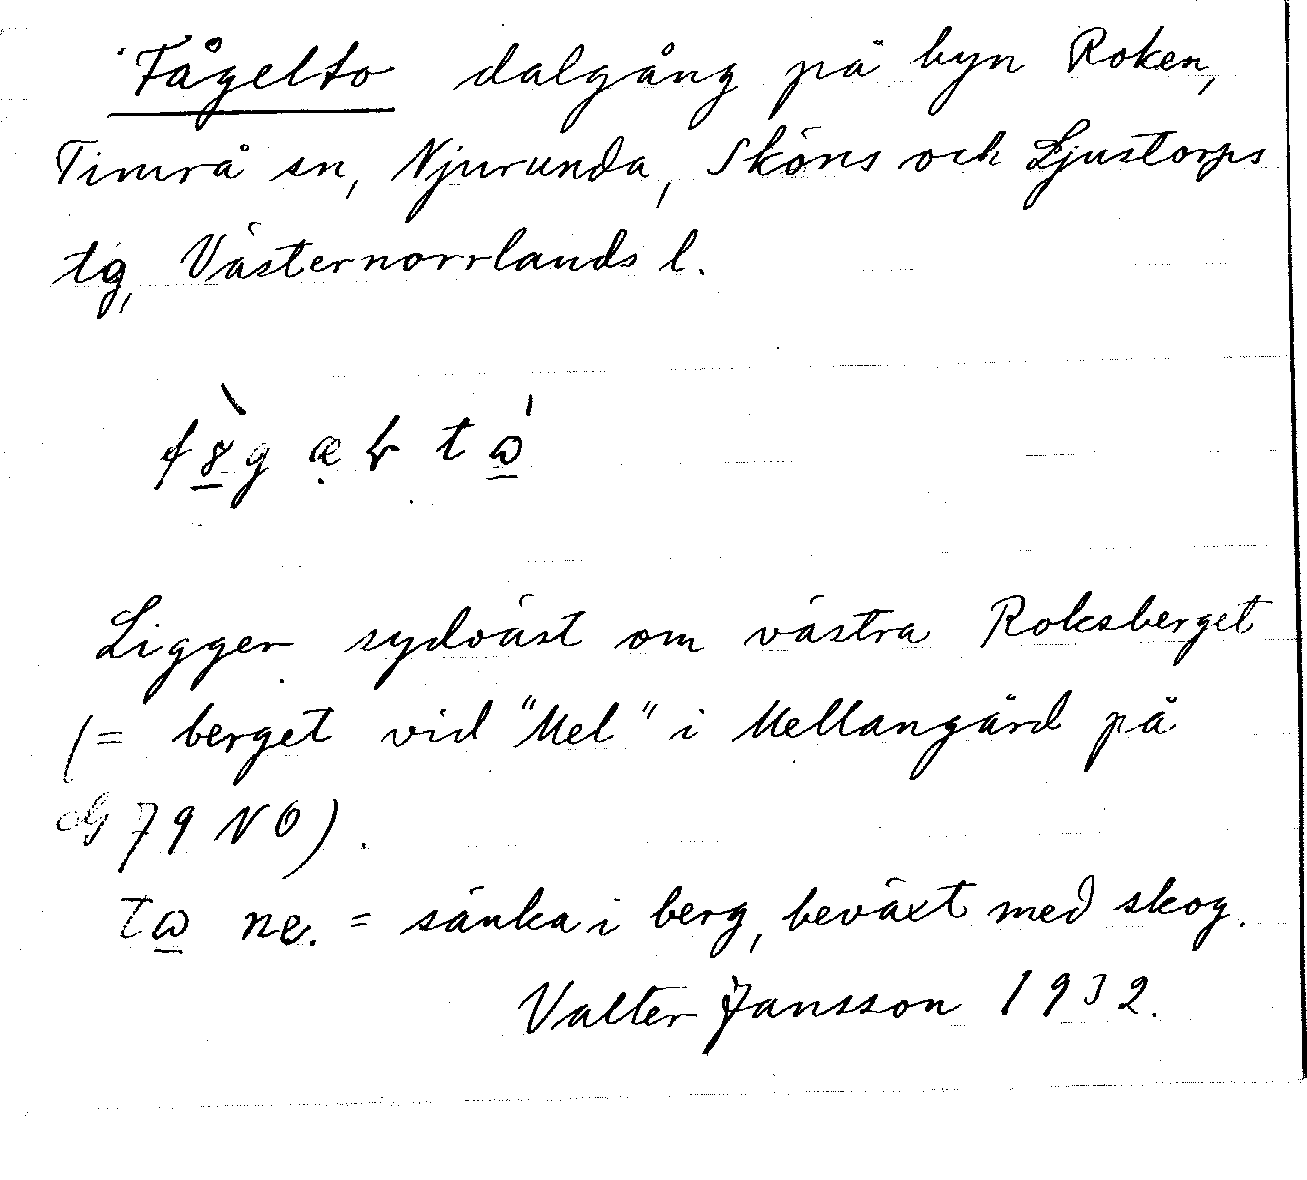 Fågelto dalgång på byn Roken,
Timrå sn, Njurunda, Sköns och Ljustorps
tg, Västernorrlands l.
Ligger sydväst om västra Roksberget
(= berget vid "Mel" i Mellangård på
G 79 NO).
tꞷ ne. = sänka i berg, beväxt med skog.
Valter Jansson 1932.